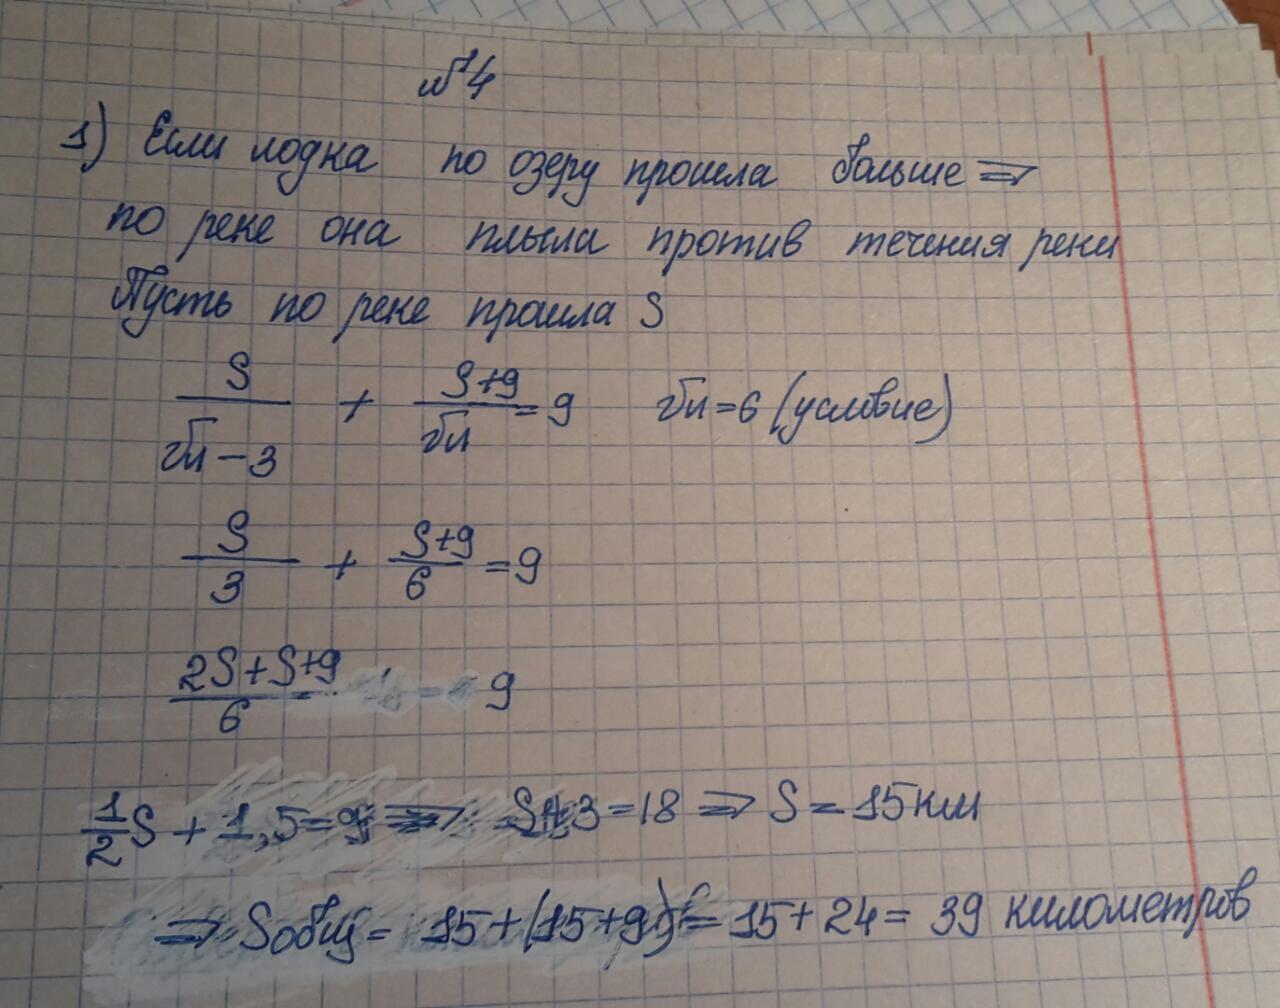 №4
1) Если лодка по озеру прошла больше ⇒
по реке она плыла против течения реки
Пусть по реке прошла S
S/(vл − 3) + (S+9)/vл = 9 vл = 6 (условие)
S/3 + (S+9)/6 = 9
(2S+S+9)/6 = 9
1/2 S + 1,5 = 9 ⇒ S+3 = 18 ⇒ S = 15 км
⇒ Sобщ = 15+(15+9) = 15+24 = 39 километров